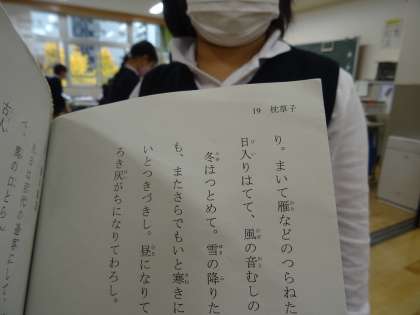 19 枕草子
り。まいて雁などのつらねた
日入りはてて、風の音むしの
冬はつとめて。雪の降りた
も、またさらでもいと寒きに
いとつきづきし。昼になりて
ろき灰がちになりてわろし。